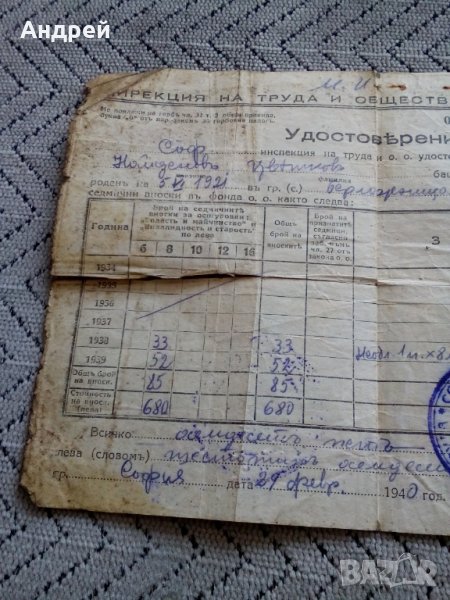 Андрей
М. И.
ДИРЕКЦИЯ НА ТРУДА И ОБЩЕСТВ
Не подлежи на гербъ чл. 31 т. 2
буква „б“ отъ нар.-закон за гербовия налогъ.
Удостоверени
Соф. инспекция на труда и о. о. удосто
Найденовъ Цвѣтковъ
фамилия
роденъ на 5 VI 1921 въ гр. (с.)
седмични вноски въ фонда о. о. както следва:
Година
Брой на седмичнитѣ вноски за осигуровки „болесть и майчинство“ и „инвалидность и старость“ по лева
6 8 10 12 16
Общъ брой на вноскитѣ
Брой на признатитѣ седмици, съгласно заб. къмъ чл. 27 отъ закона о. о.
„З
1934
1935
1936
1937
1938 33 33
1939 52 52
Общъ брой на вноск. 85 85
Стойность на вноск. (лева) 680 680
Всичко осемдесеть и петь
лева (словомъ) шестотинъ осемдес
гр. София дата 29 февр. 1940 год.
BAZAR